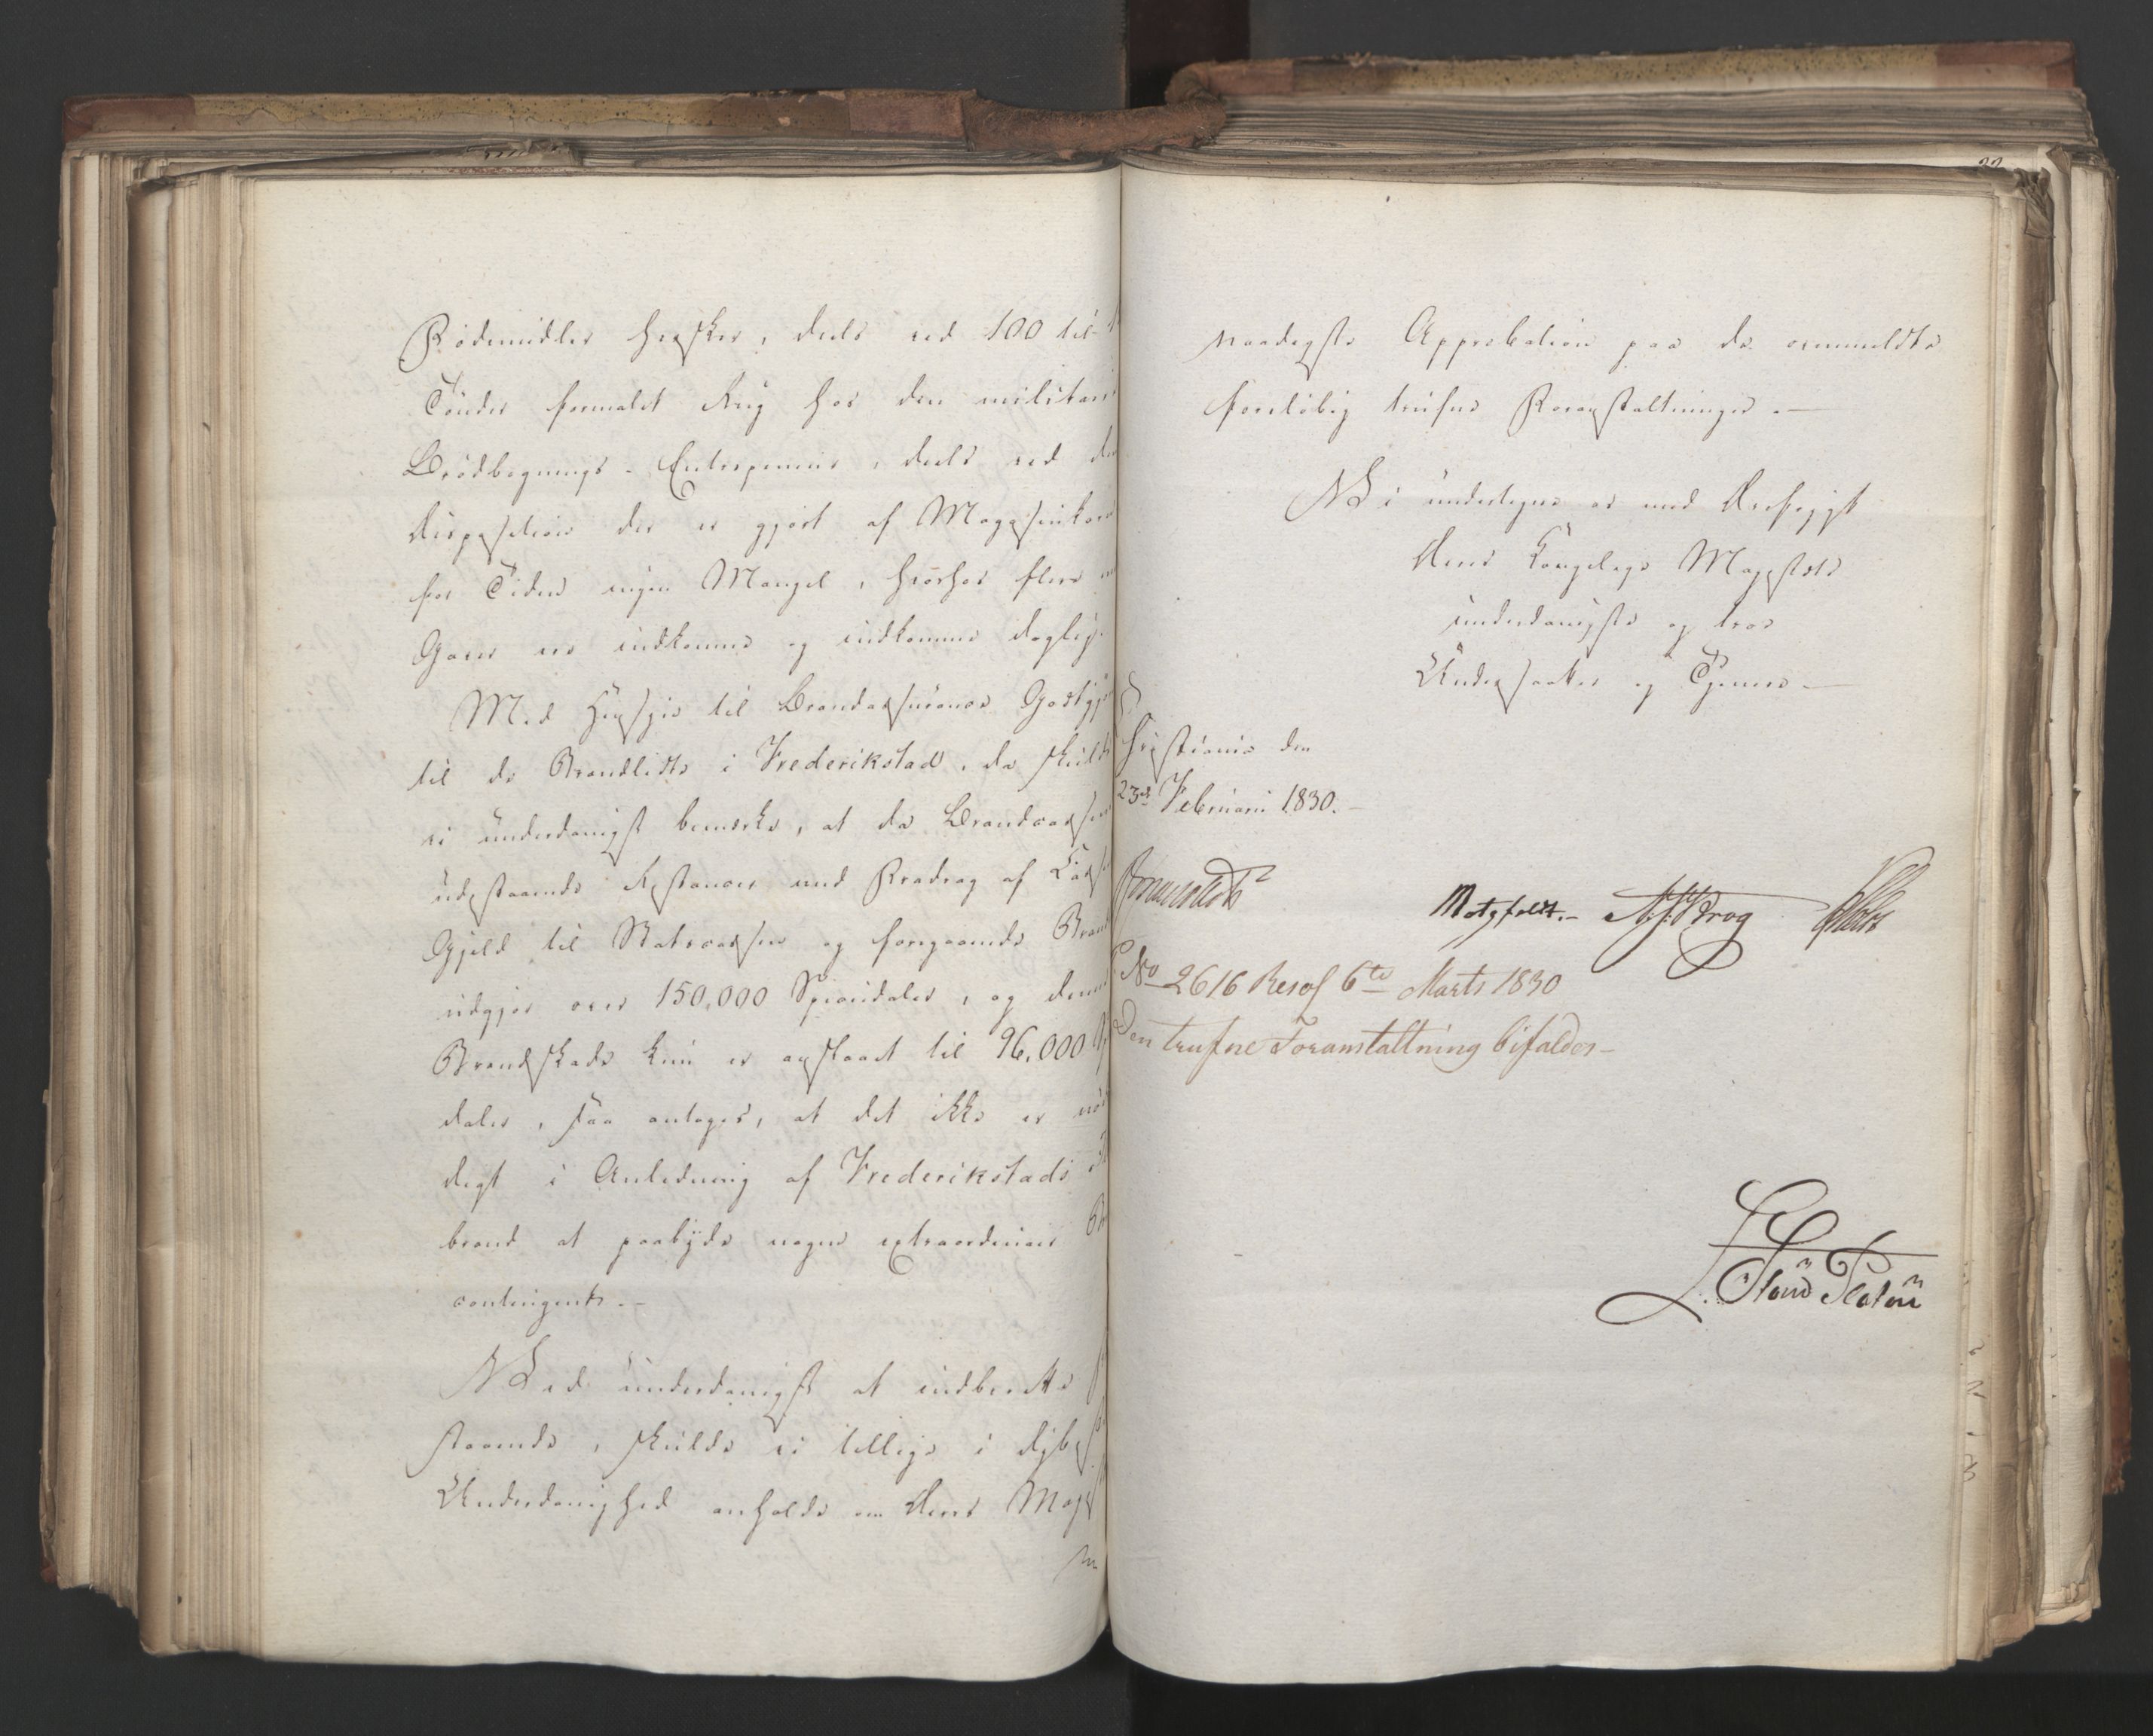 Fødemidler hersker, deels ved 100 til-
Tönder formalet Rug hos den militair
Brödbagnings-Entrepeneur, deels ved den
disposition der er gjort af Magasinkorn
for Tiden ingen Mangel, hvorhos flere
Gaver ere indkomne og indkomme daglig.
Med Hensyn til Brandassurance Godtgj
til de Brandlidte i Frederikstad, da skulde
vi underdanigst bemærke, at da Brandcassens
udestaaende Restancer med Fradrag af Cassens
Gjeld til Statscassen og foregaaende Brand
udgjør over 150,000 Speciedaler, og denne
Brandskade kun er anslaaet til 96,000
daler, saa antages, at det ikke er nød
digt i Anledning af Frederikstads
brand at paabyde nogen extraordinair
contingent.-
Ved underdanigst at indberette
staaende, skulde vi tillige i dybeste
Underdanighed anholde om Deres Maje
naadigste Approbation paa de ovenmeldte
foreløbig trufne Foranstaltninger.-
Vi undertegne os med Ærefrygt
Deres Kongelige Majestæts
underdanigste og troe
Undersaatter og Tjenere-
Christiania den
23de Februarii 1830.-
Motzfeldt.- Krog
No 2616 Resol 6te Marts 1830
Den trufne Foranstaltning bifaldes-
Stoud Platou